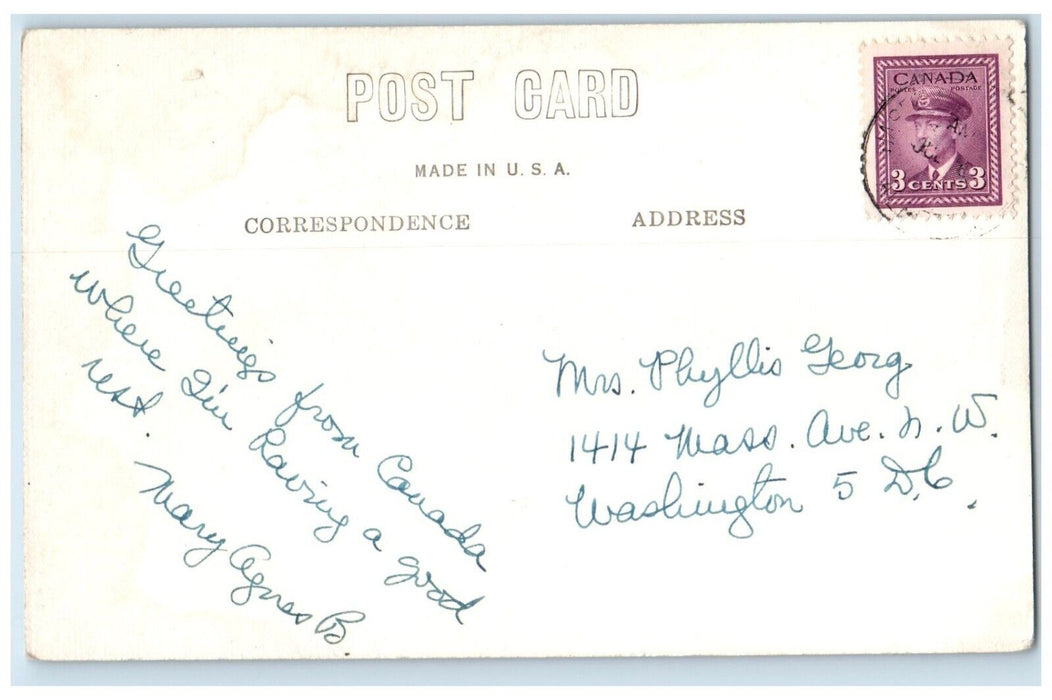 POST CARD
MADE IN U. S. A.
CORRESPONDENCE ADDRESS
CANADA
POSTES POSTAGE
3 CENTS 3
Greetings from Canada
where I'm having a good
rest.
Mary Agnes B.
Mrs. Phyllis Georg
1414 Mass. Ave. N. W.
Washington 5 D.C.